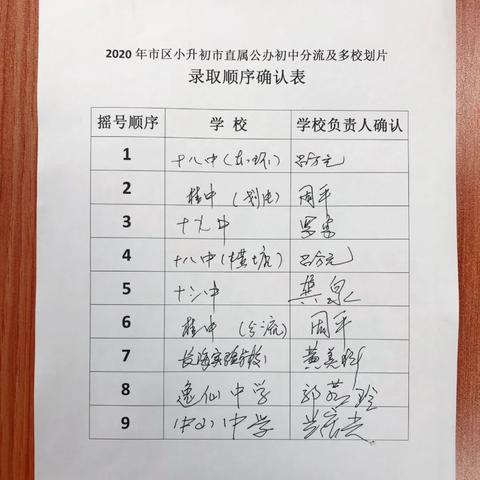 2020 年市区小升初市直属公办初中分流及多校划片
录取顺序确认表
摇号顺序 学 校 学校负责人确认
1 十八中(东环) 吕分元
2 桂中 (划片) 周平
3 十九中
4 十八中(横塘) 吕分元
5 十六中 龚泉
6 桂中 (分流) 周平
7 长海实验学校 黄美
8 逸仙中学 郭
9 中山中学